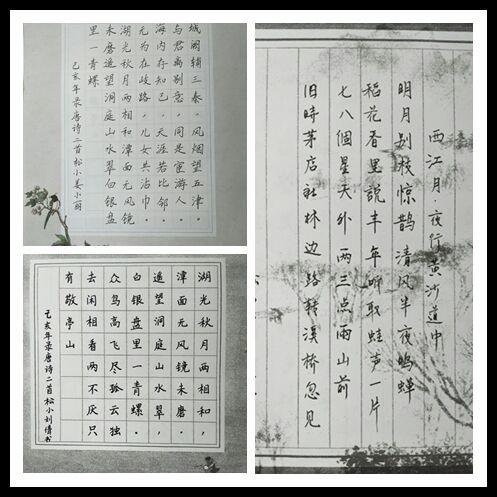 城阙辅三秦。风烟望五津。
与君离别意，同是宦游人
海内存知己，天涯若比邻
无为在歧路，儿女共沾巾。
湖光秋月两相和潭面无风镜
未磨遥望洞庭山水翠白银盘
里一青螺
己亥年录唐诗二首松小姜小丽
湖光秋月两相和，
潭面无风镜未磨。
遥望洞庭山水翠，
白银盘里一青螺。
众鸟高飞尽孤云独
去闲相看两不厌只
有敬亭山
己亥年录唐诗二首松小刘倩书
西江月·夜行黄沙道中
明月别枝惊鹊 清风半夜鸣蝉
稻花香里說丰年听取蛙声一片
七八個星天外 两三点雨山前
旧時茅店社林边 路转溪桥忽见